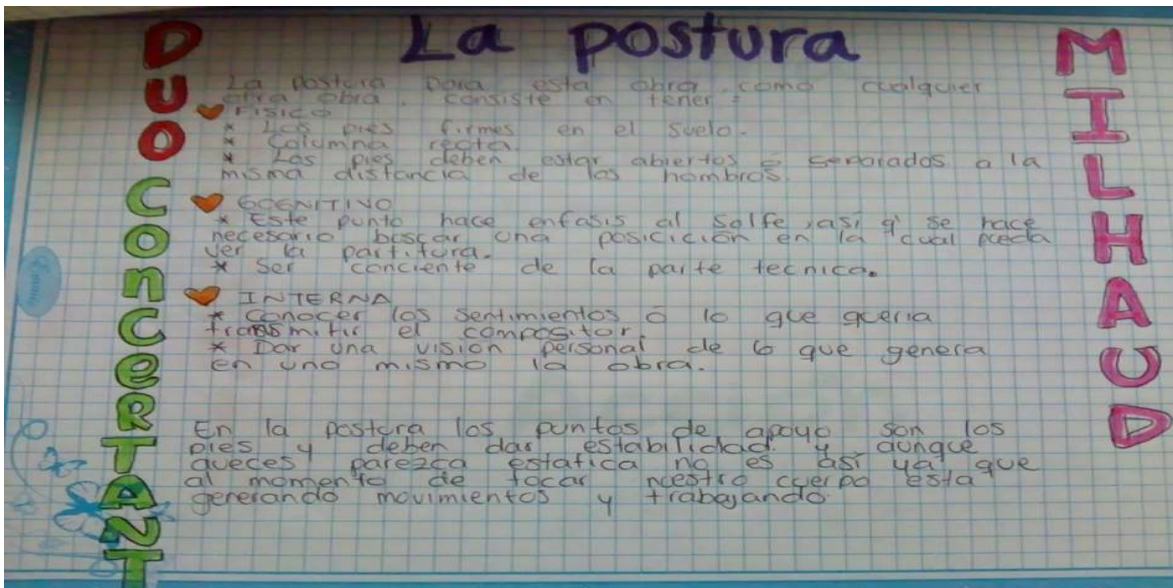 La postura
DUO
ConCeRTANT
MILHAUD
La postura para esta obra como cualquier
otra obra consiste en tener:
FISICO
* Los pies firmes en el suelo.
* Columna recta.
* Los pies deben estar abiertos ó separados a la
misma distancia de los hombros.
COGNITIVO
* Este punto hace enfasis al solfe, así q' se hace
necesario buscar una posicición en la cual pueda
ver la partitura.
* Ser conciente de la parte tecnica.
INTERNA
* Conocer los sentimientos ó lo que queria
transmitir el compositor.
* Dar una visión personal de lo que genera
en uno mismo la obra.
En la postura los puntos de apoyo son los
pies y deben dar estabilidad y aunque
aveces parezca estatica no es así ya que
al momento de tocar nuestro cuerpo esta
generando movimientos y trabajando.